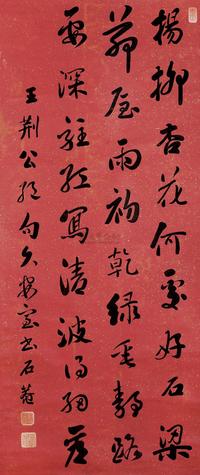 楊柳杏花何處好石梁
茆屋雨初乾綠垂靜路
要深駐紅寫清波得細看
王荊公絕句久安室書石菴